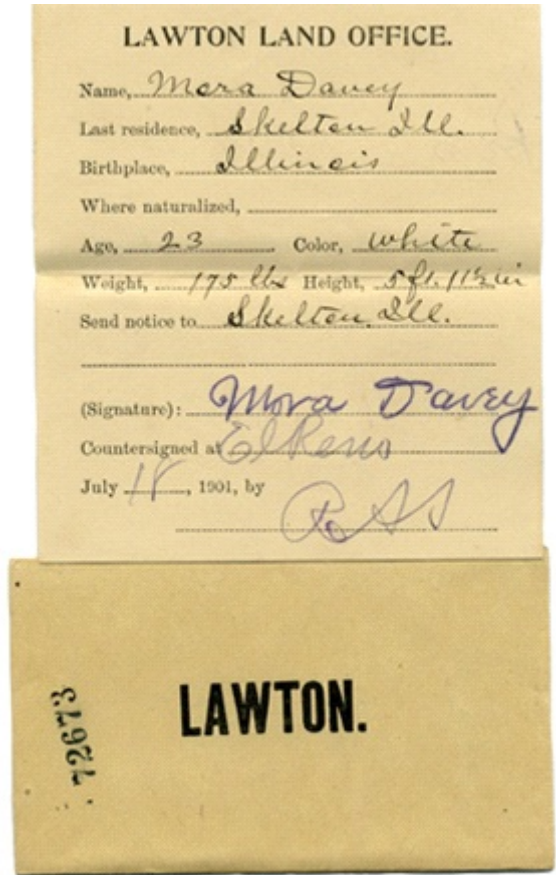 LAWTON LAND OFFICE.
Name, Mora Davey
Last residence, Skelton Ill.
Birthplace, Illinois
Where naturalized,
Age, 23 Color, white
Weight, 175 lbs Height, 5 ft. 11½ in
Send notice to Skelton, Ill.
(Signature): Mora Davey
Countersigned at El Reno
July 18, 1901, by
72673
LAWTON.